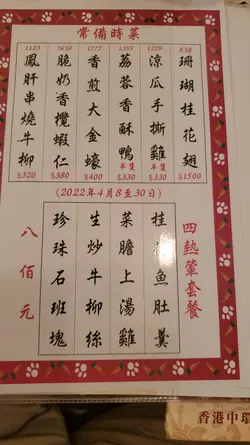 常備時菜
838
珊瑚桂花翅
$1500
1229
涼瓜手撕雞
半隻
$330
1355
荔蓉香酥鴨
半隻
$330
1777
香煎大金蠔
$400
1610
脆奶香欖蝦仁
$380
1123
鳳肝串燒牛柳
$320
(2022年4月8至30日)
四熱葷套餐
桂魚肚羹
菜膽上湯雞
生炒牛柳絲
珍珠石班塊
八佰元
香港中環